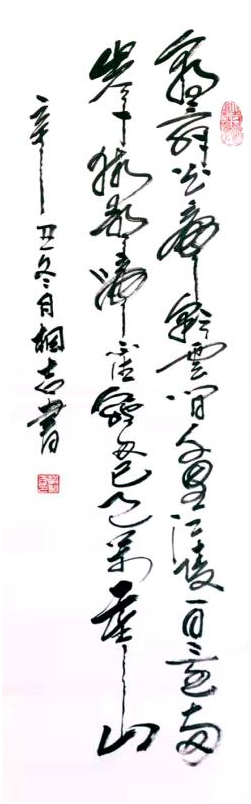 朝辭白帝彩雲間千里江陵一日還兩
岸猿聲啼不住輕舟已過萬重山
辛丑冬月桐志書